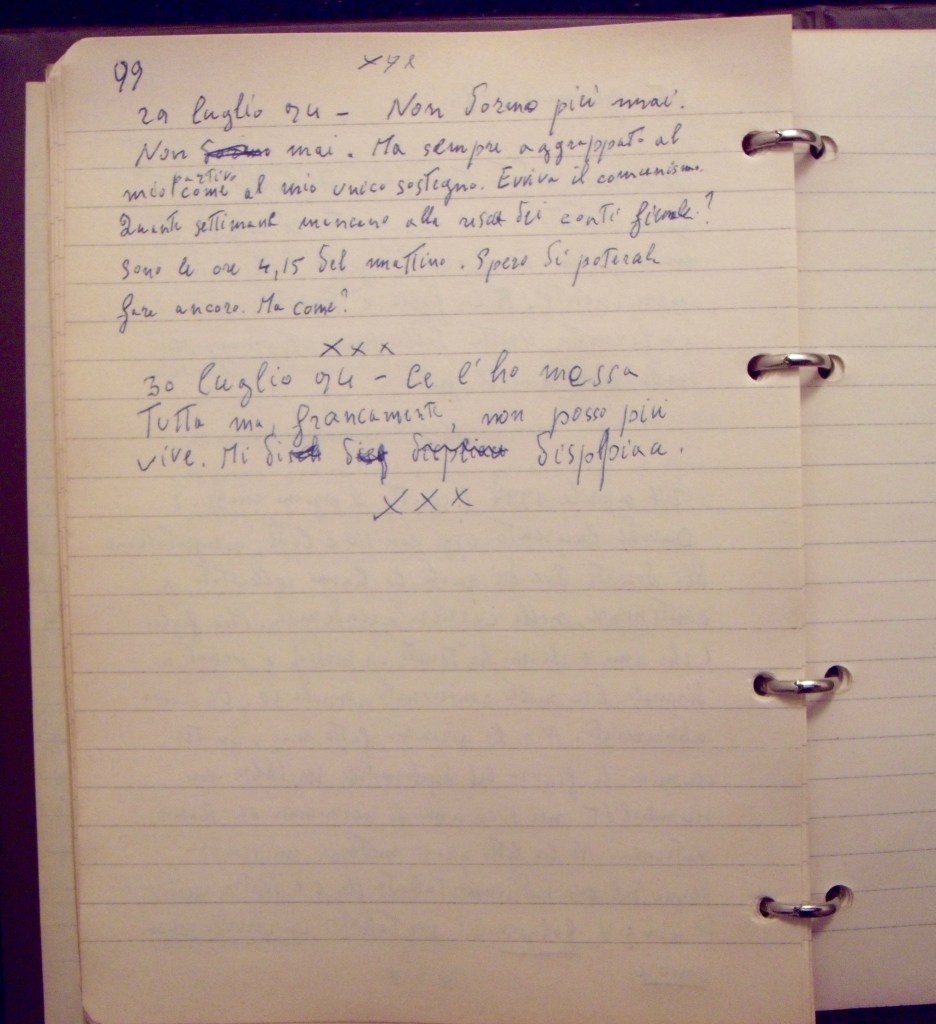 99
29 luglio 94 - Non dormo più mai.
Non dormo mai. Ma sempre aggrappato al
mio partito come al mio unico sostegno. Evviva il comunismo.
Quante settimane mancano alla resa dei conti finale?
Sono le ore 4,15 del mattino. Spero di potercela
fare ancora. Ma come?
xxx
30 luglio 94 - Ce l'ho messa
Tutta ma, francamente, non posso più
vive. Mi disppiaa.
xxx